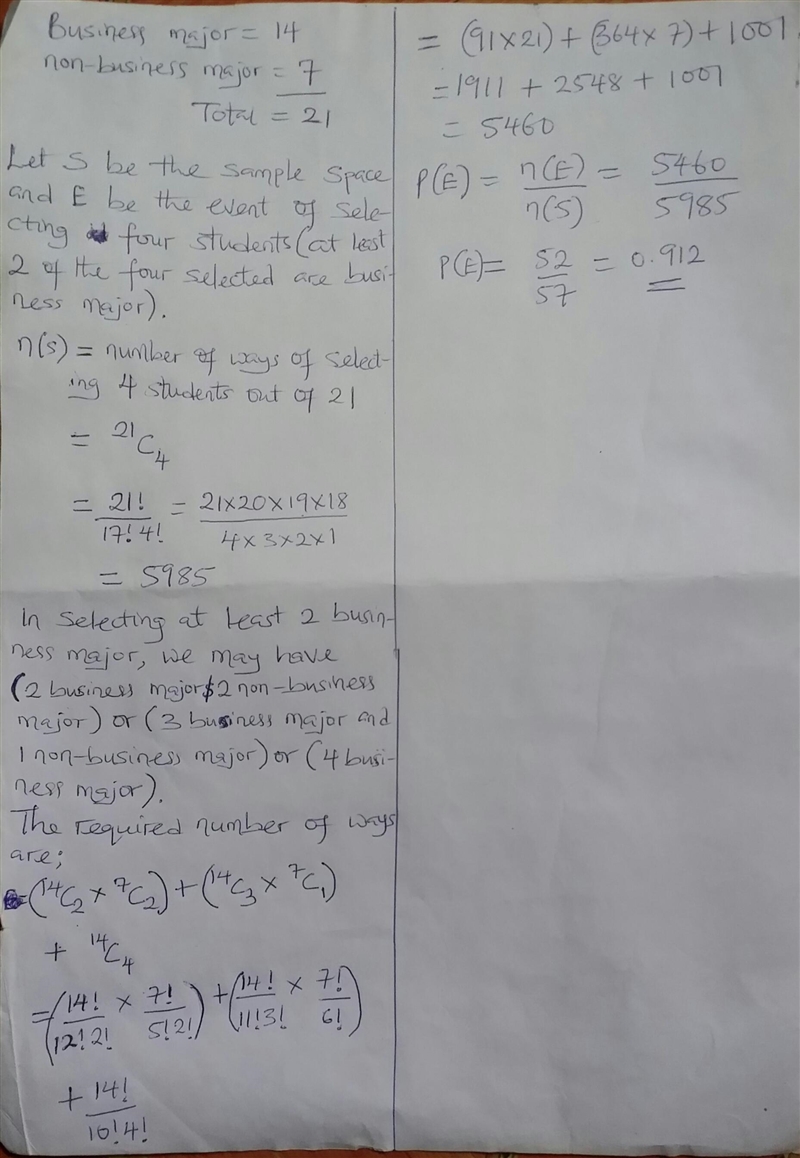 Business major = 14
non-business major = 7
Total = 21
Let S be the sample space
and E be the event of sele-
cting four students (at least
2 of the four selected are busi-
ness major).
n(s) = number of ways of select-
ing 4 students out of 21
= ²¹C₄
= 21!/17!4! = 21×20×19×18/4×3×2×1
= 5985
In selecting at least 2 busin-
ness major, we may have
(2 business major $ 2 non-business
major) or (3 business major and
1 non-business major) or (4 busi-
ness major).
The required number of ways
are;
= (¹⁴C₂ × ⁷C₂) + (¹⁴C₃ × ⁷C₁)
+ ¹⁴C₄
= (14!/12!2! × 7!/5!2!) + (14!/11!3! × 7!/6!)
+ 14!/10!4!
= (91×21) + (364×7) + 1001
= 1911 + 2548 + 1001
= 5460
P(E) = n(E)/n(S) = 5460/5985
P(E) = 52/57 = 0.912